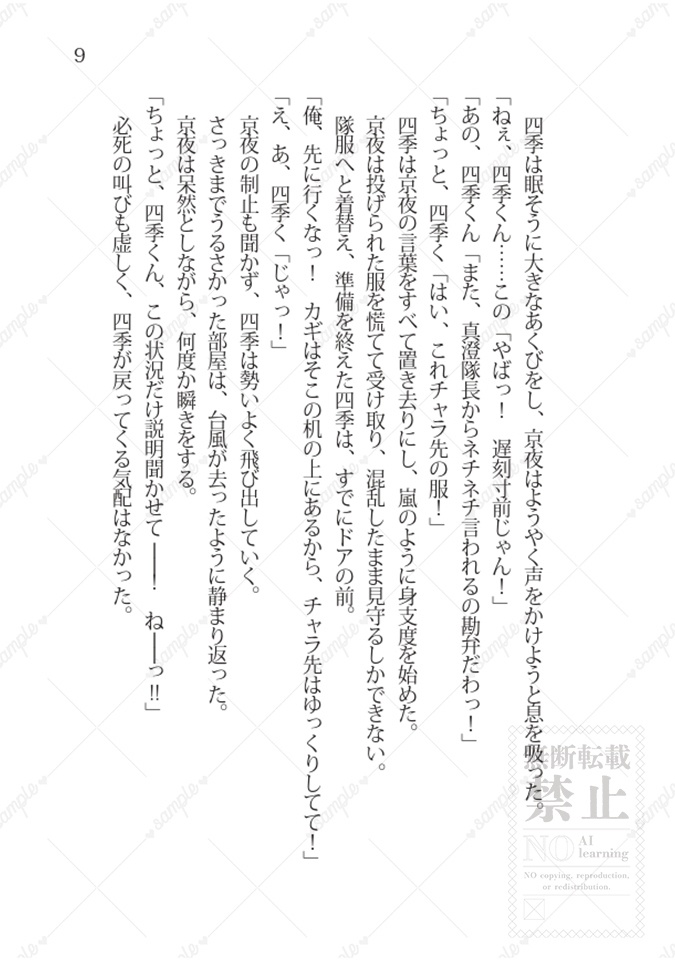 9
四季は眠そうに大きなあくびをし、京夜はようやく声をかけようと息を吸った。
「ねぇ、四季くん……この「やばっ！　遅刻寸前じゃん！」
「あの、四季くん「また、真澄隊長からネチネチ言われるの勘弁だわっ！」
「ちょっと、四季く「はい、これチャラ先の服！」
四季は京夜の言葉をすべて置き去りにし、嵐のように身支度を始めた。
京夜は投げられた服を慌てて受け取り、混乱したまま見守るしかできない。
隊服へと着替え、準備を終えた四季は、すでにドアの前。
「俺、先に行くなっ！　カギはそこの机の上にあるから、チャラ先はゆっくりしてて！」
「え、あ、四季く「じゃっ！」
京夜の制止も聞かず、四季は勢いよく飛び出していく。
さっきまでうるさかった部屋は、台風が去ったように静まり返った。
京夜は呆然としながら、何度か瞬きをする。
「ちょっと、四季くん、この状況だけ説明聞かせて――！　ね――っ‼」
必死の叫びも虚しく、四季が戻ってくる気配はなかった。
無断転載
禁止
NO AI learning
NO copying, reproduction,
or redistribution.
sample